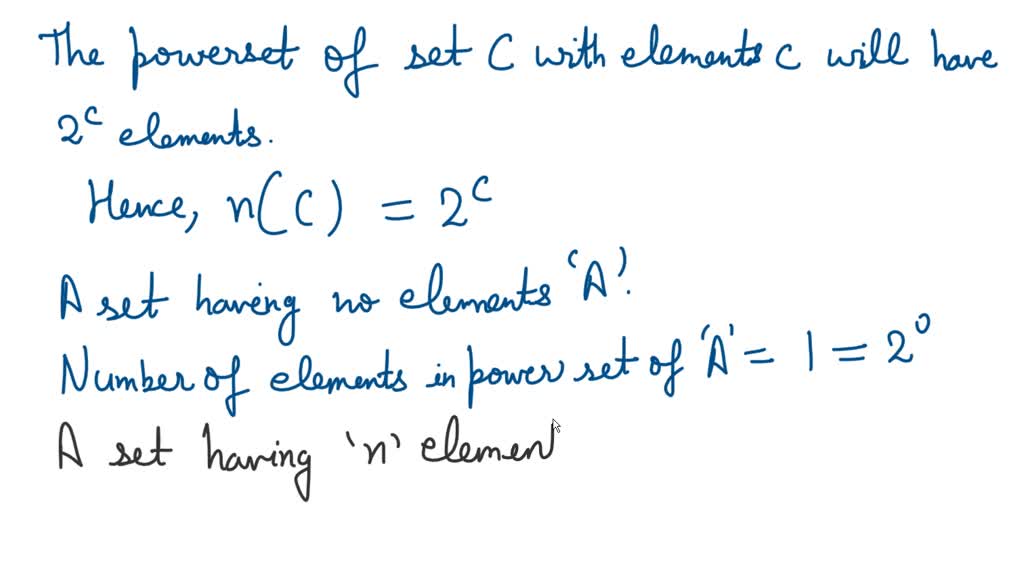 The powerset of set C with elements c will have
2^c elements.
Hence, n(C) = 2^c
A set having no elements 'A'.
Number of elements in power set of 'A' = 1 = 2^0
A set having 'n' elemen